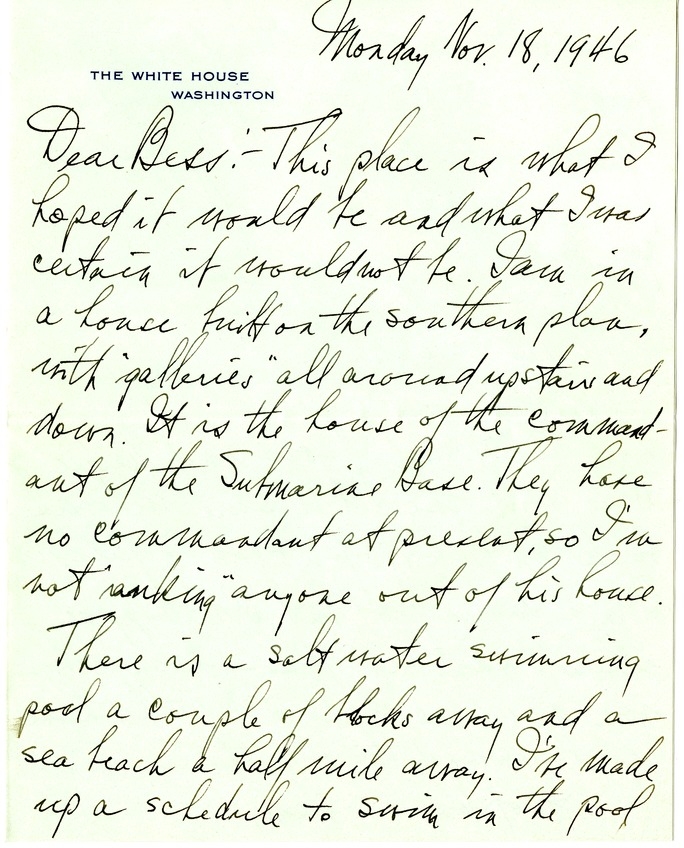 Monday Nov. 18, 1946
THE WHITE HOUSE
WASHINGTON
Dear Bess:- This place is what I
hoped it would be and what I was
certain it would not be. I am in
a house built on the southern plan,
with "galleries" all around upstairs and
down. It is the house of the command-
ant of the Submarine Base. They have
no commandant at present, so I'm
not "ranking" anyone out of his house.
There is a salt water swimming
pool a couple of blocks away and a
sea beach a half mile away. I've made
up a schedule to swim in the pool